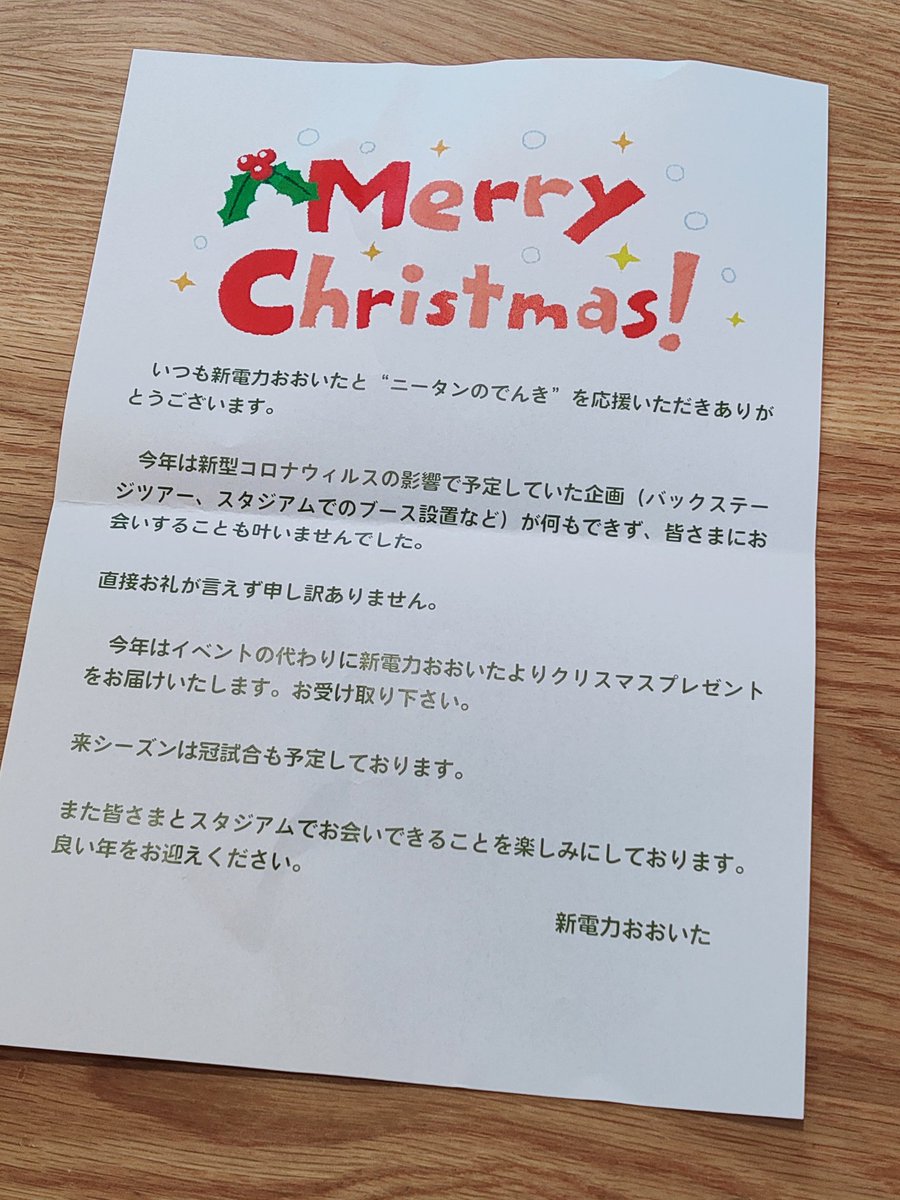 Merry
Christmas!
いつも新電力おおいたと“ニータンのでんき”を応援いただきありが
とうございます。
今年は新型コロナウィルスの影響で予定していた企画（バックステー
ジツアー、スタジアムでのブース設置など）が何もできず、皆さまにお
会いすることも叶いませんでした。
直接お礼が言えず申し訳ありません。
今年はイベントの代わりに新電力おおいたよりクリスマスプレゼント
をお届けいたします。お受け取り下さい。
来シーズンは冠試合も予定しております。
また皆さまとスタジアムでお会いできることを楽しみにしております。
良い年をお迎えください。
新電力おおいた